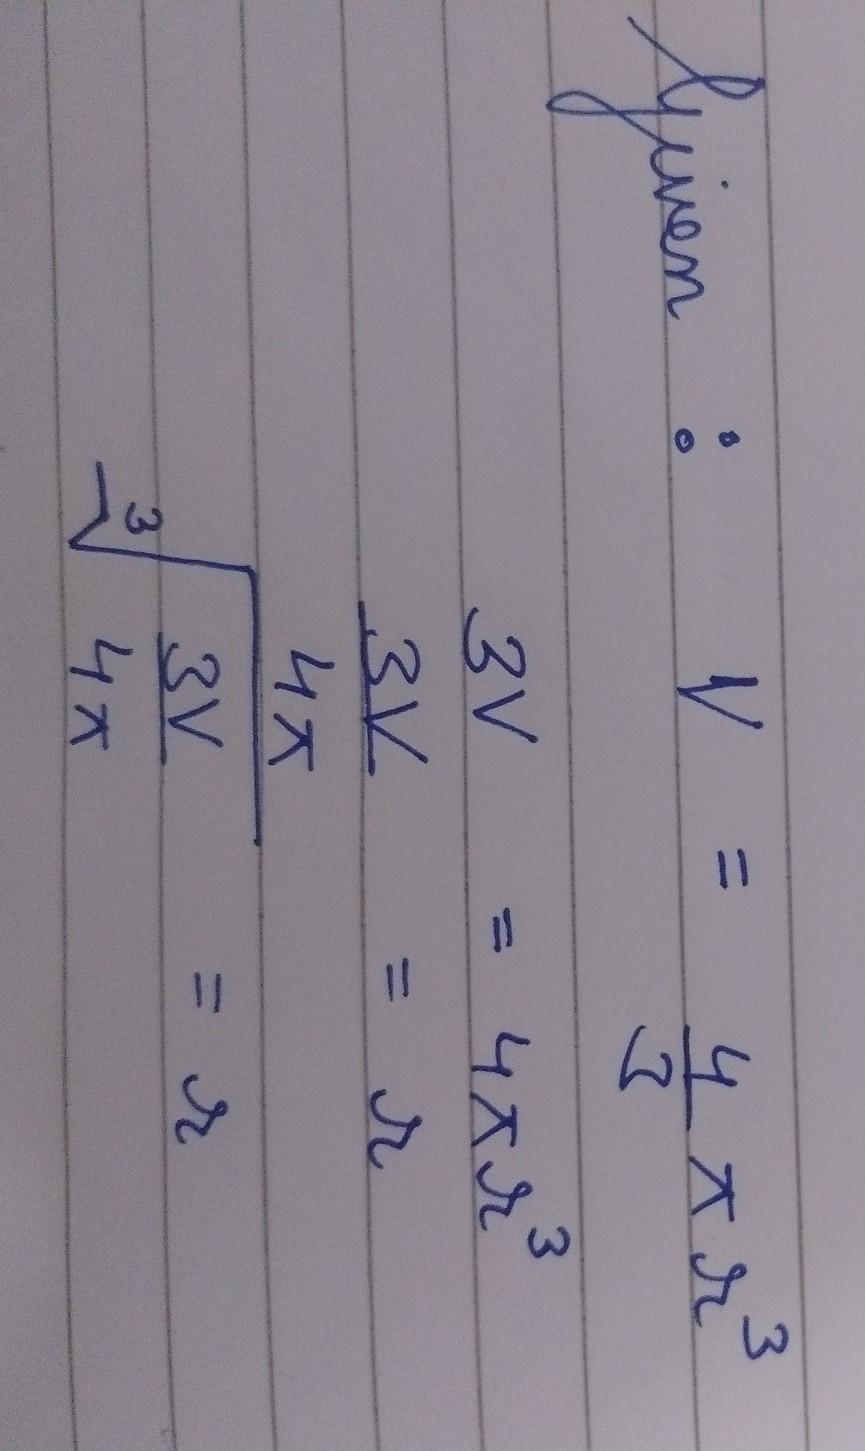 Given : V = 4/3 πr³
3V = 4πr³
3V/4π = r
∛(3V/4π) = r